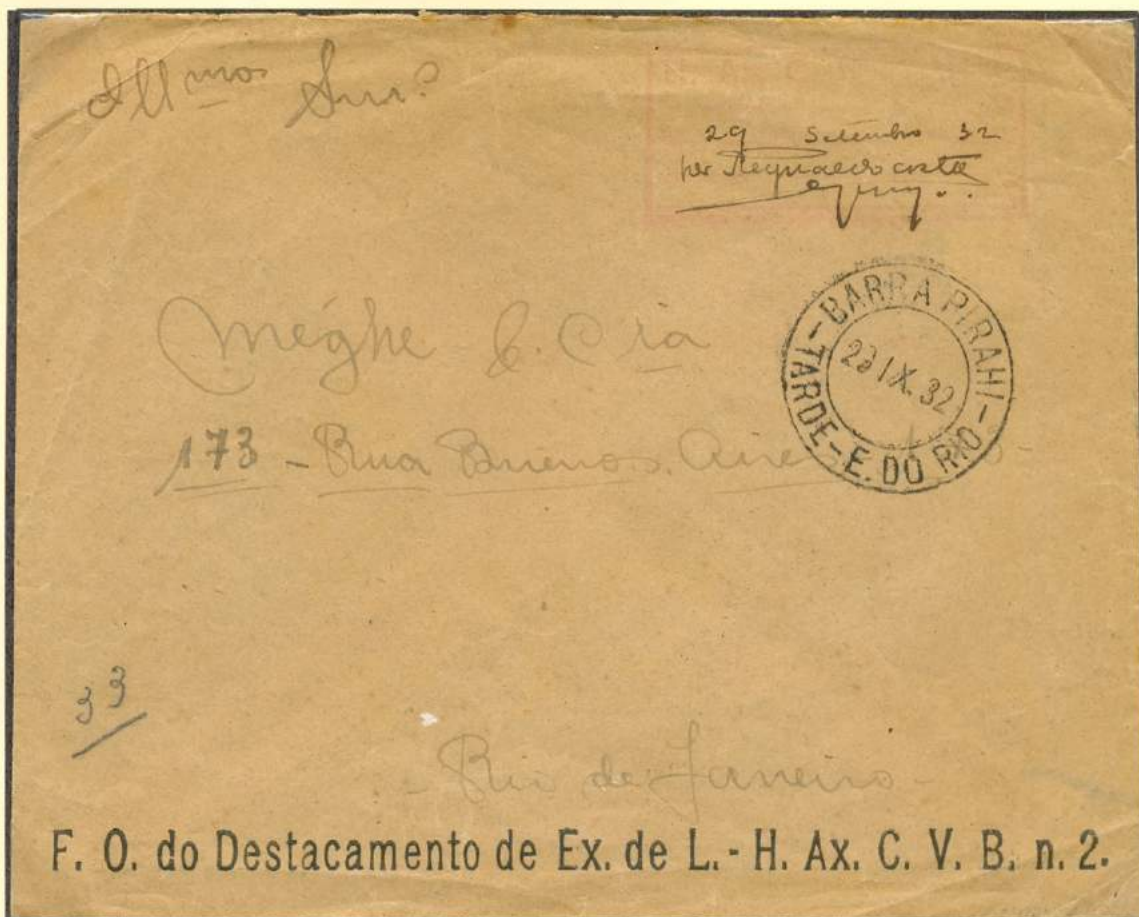 Illmos Snrs
29 Setembro 32
por Reynaldo Costa
BARRA PIRAHI
29 IX. 32
TARDE - E. DO RIO
Méghe & Cia
173 - Rua Buenos Aires
33
- Rio de Janeiro -
F. O. do Destacamento de Ex. de L. - H. Ax. C. V. B. n. 2.